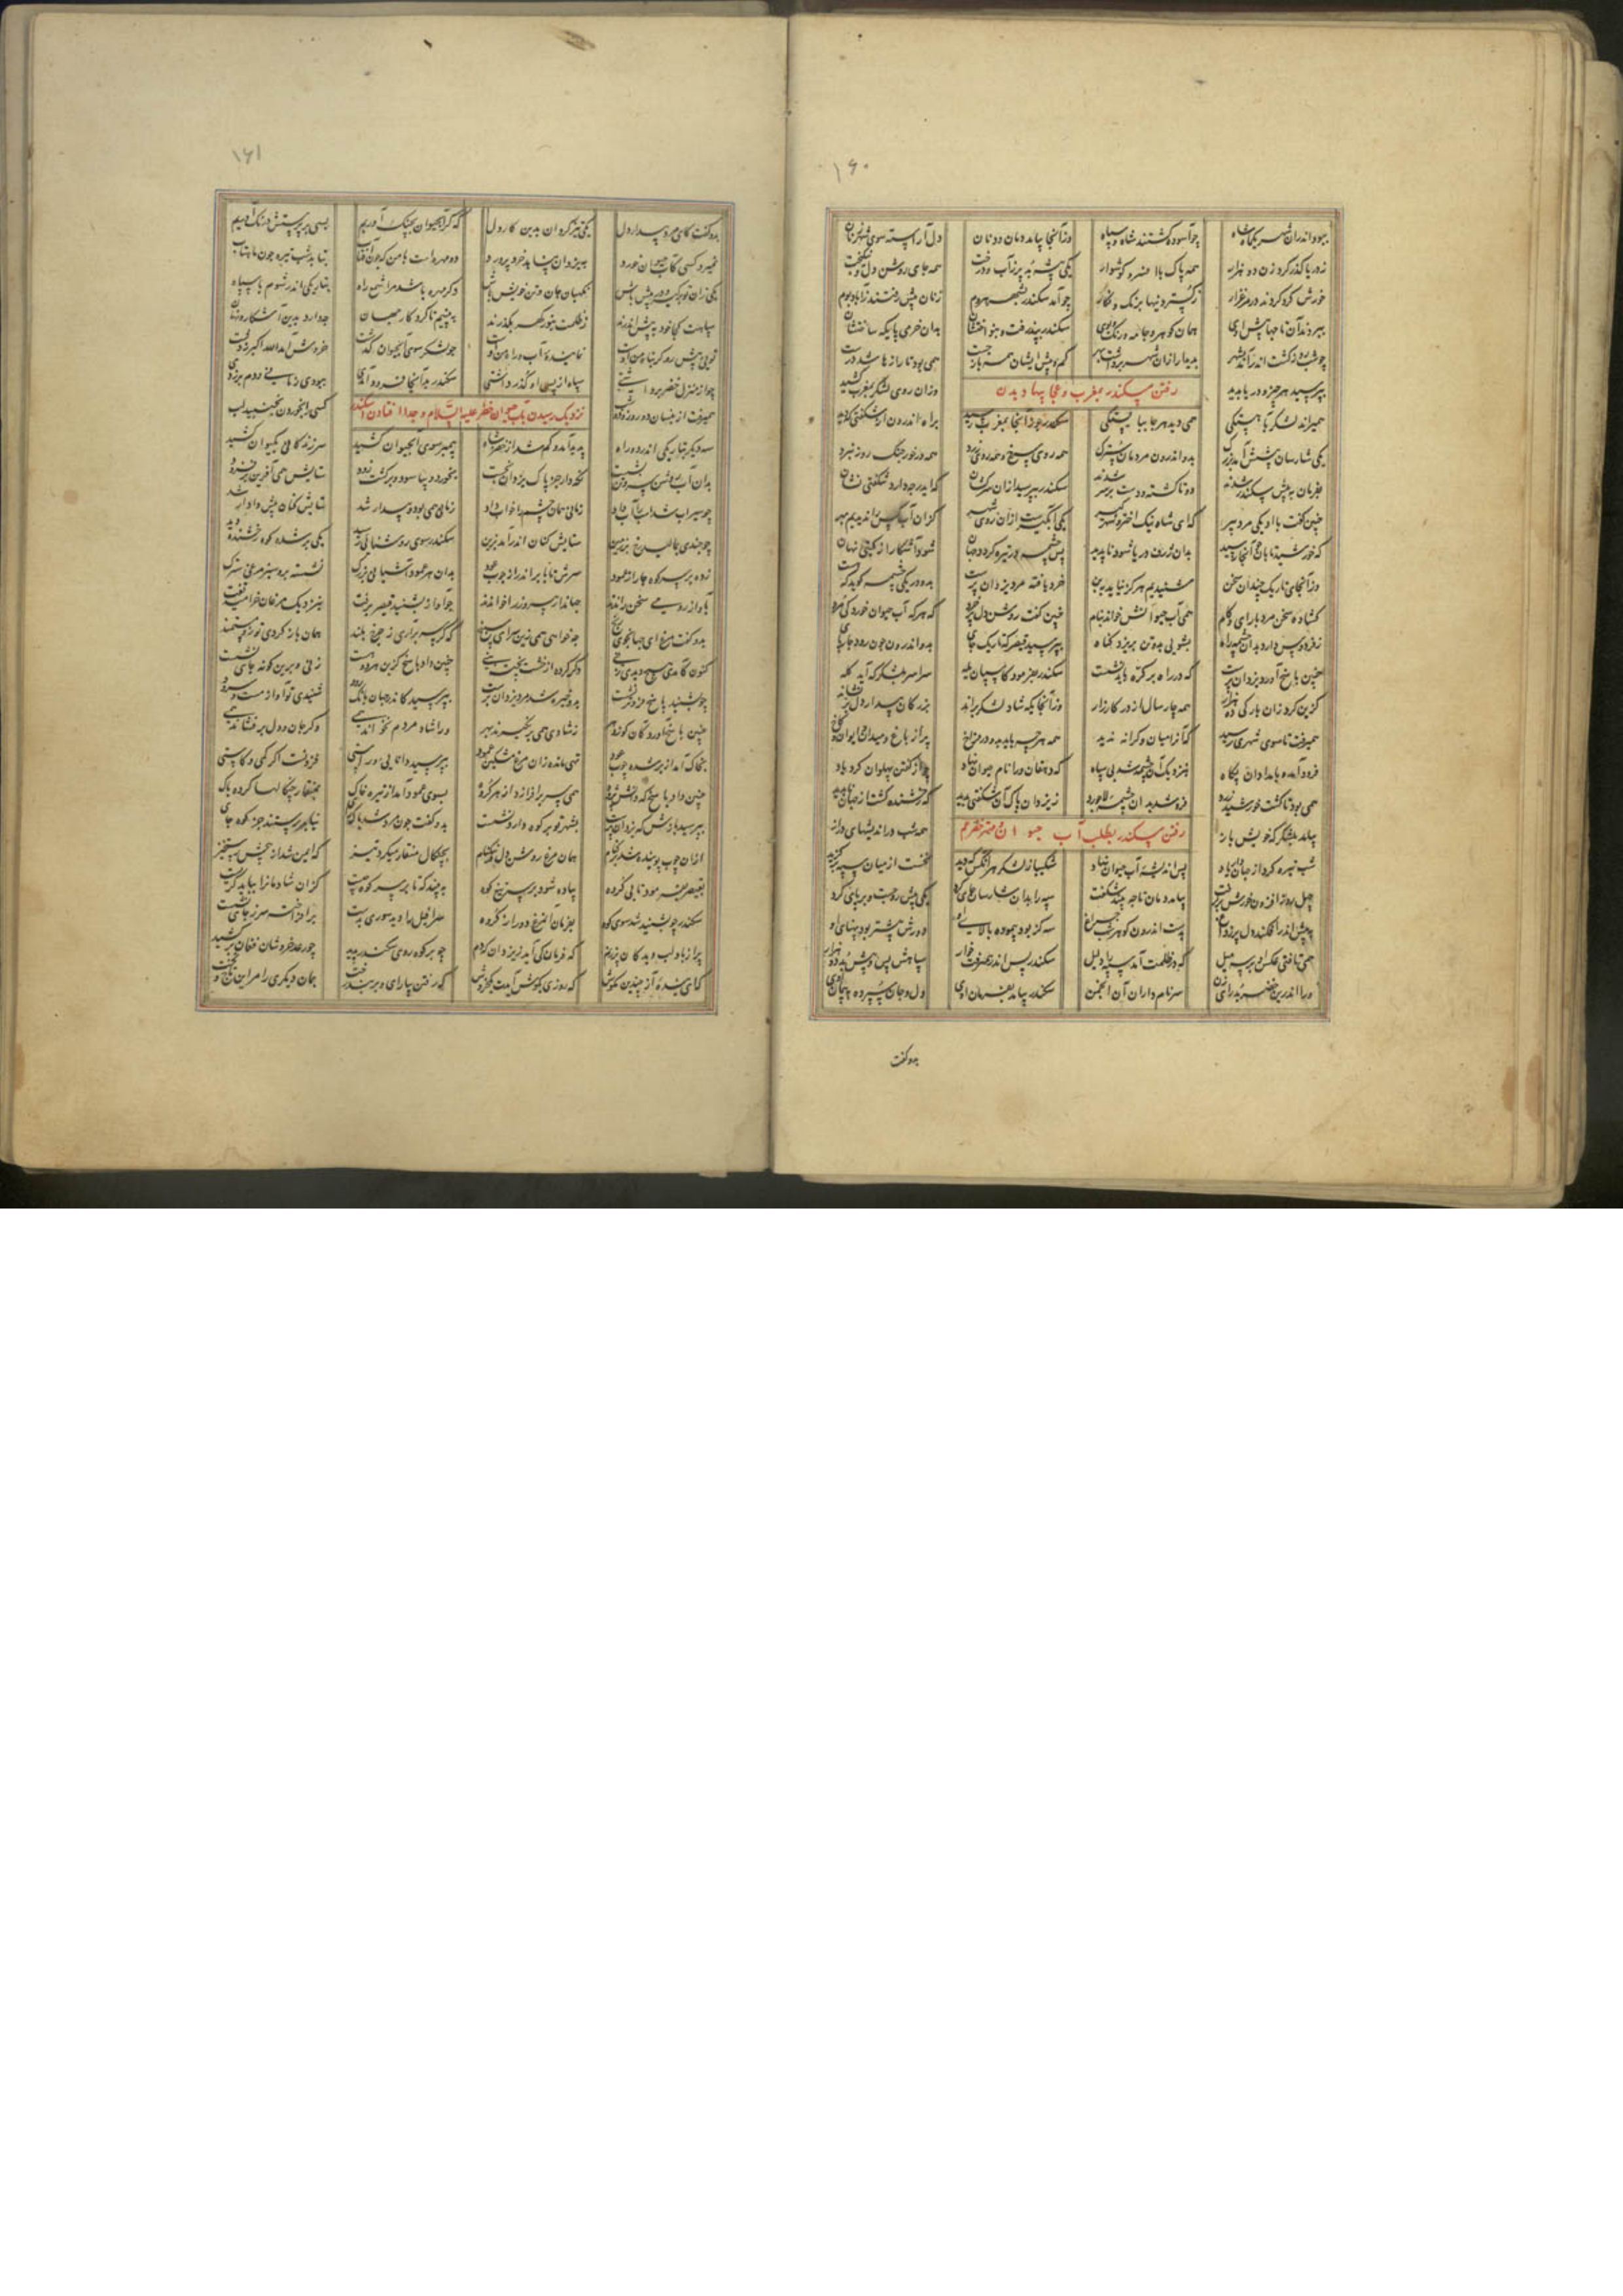 ۱۶۰
ببود اندران شهر یکماه شاه چو آسوده گشتند شاه و سپاه وزآنجا بیامد دمان و دنان دل آراسته سوی شهر زنان
ز دریا گذر کرد زن دو هزار همه پاک با افسر و گوشوار یکی بیشه بد پر ز آب و درخت همه جای روشن دل و نیکبخت
خورش گرد کردند در مرغزار ز گستردنیها برنگ و نگار چو آمد سکندر بشهر هروم زنان پیش رفتند ز آباد بوم
ببردند آن تاجها پیش اوی همان گوهر و جامه و رنگ و بوی سکندر بپذرفت و بنواختشان بدان خرمی پایگه ساختشان
چو شب روز گشت اندر آمد بشهر بدیدار ازان شهر برداشت بهر کم و بیش ایشان همی بازجست همی بود تا رازها شد درست
بپرسید هر چیز و دریا بدید وزان روی لشکر بمغرب کشید
رفتن سکندر بمغرب و عجایبها دیدن
همیراند لشکر بآهستگی همی دید هر جا ببایستگی سکندر چو زآنجا بمغرب رسید براه اندرون از شگفتی که دید
یکی شارسان پیشش آمد بزرگ بدو اندرون مردمان سترگ همه روی سرخ و همه موی زرد همه درخور جنگ روز نبرد
بفرمان به پیش سکندر شدند دو تا گشته و دست بر سر زدند سکندر بپرسید ازان سرکشان که ایدر چه دارد شگفتی نشان
چنین گفت با او یکی مرد پیر که ای شاه نیک اختر و شهرگیر یکی آبگیرست ازان روی شهر کزان آب کس را ندیدیم بهر
که خورشید تابان چو آنجا رسید بدان ژرف دریا شود ناپدید پس چشمه در تیره گردد جهان شود آشکارا ز گیتی نهان
وزآنجای تاریک چندان سخن شنیدیم هرگز نیاید به بن خرد یافته مرد یزدان پرست بدو در یکی چشمه گوید که هست
گشاده سخن مرد با رای و کام همی آب حیوانش خواند بنام چنین گفت روشن دل پر خرد که هر که آب حیوان خورد کی مرد
ز فردوس دارد بدان چشمه راه بشویی بدو تن بریزد گناه بپرسید قیصر که تاریک جای بدو اندرون چون رود چارپای
چنین پاسخ آورد یزدان پرست که در راه بر کره باید نشست سکندر بفرمود کاسپان یله سراسر بلشکرگه آید گله
گزین کرد زان بارگی ده هزار همه چار سال از در کارزار وزآنجایگه شاد لشکر براند بزرگان بیدار دل را بخواند
همیرفت تا سوی شهری رسید که آنرا میان و کرانه ندید همه هر چه باید بدو در فراخ پر از باغ و میدان و ایوان و کاخ
فرود آمد و بامدادان پگاه بنزدیک آن چشمه شد بی سپاه که دهقان ورا نام حیوان نهاد چو از گفتن پهلوان کرد یاد
همی بود تا گشت خورشید زرد فرو شد بدان چشمه لاجورد ز یزدان پاک آن شگفتی بدید که رخشنده گشت از جهان ناپدید
بیامد بلشکرگه خویش باز همه شب در اندیشهای دراز
رفتن سکندر بطلب آب حیوان
شب تیره کرد از جهاندار یاد پس اندیشه آب حیوان نهاد شکیبا ز لشکر هر آنکس که دید نخست از میان سپه برگزید
چهل روزه افزون خورش برگرفت بیامد دمان تا چه بیند شگفت سپه را بدان شارسان جای کرد یکی پیش رو جست و بر پای کرد
به پیش اندر افکند دل پر ز داغ اندرون گوهر شب چراغ سه گز بود پیموده بالای او دو رش بیشتر بود پهنای او
همی تافتی عکس او بر سه میل که در ظلمت آمد دلیل سکندر پس اندر همیرفت خوار سپاهش پس او پیش بد ده هزار
ورا اندرین خضر بد رای زن سر نامداران آن انجمن سکندر بیامد بفرمان اوی دل و جان سپرده به پیمان اوی
بدو گفت
۱۶۱
بدو گفت کای مرد بیدار دل یکی تیز گردان بدین کار دل که گر آب حیوان بچنگ آوریم بسی بر پرستش درنگ آوریم
نمیرد کسی کآب حیوان خورد به یزدان پناهد خرد پرورد دو مهره است با من که چون آفتاب بتابد شب تیره چون ماهتاب
یکی زان تو برگیر و در پیش باش نگهبان جان و تن خویش باش دگر مهره باشد مرا شمع راه بتاریکی اندر شوم با سپاه
سپاهت کجا خود به پیش اندرند ز ظلمت بنور گهر بگذرند به بینیم تا کردگار جهان چه دارد بدین آشکار و نهان
تویی پیش رو گر پناه من اوست نماینده آب و راه من اوست چو لشکر سوی آب حیوان گذشت خروش آمد الله اکبر ز دشت
چو از منزل خضر برداشتی سپاه از پس او گذر داشتی سکندر بدآنجا فرود آمدی ببودی زمانی و دم برزدی
همیرفت ازینسان دو روز و دو شب کسی را بخوردن نجنبید لب
نزدیک رسیدن بآب حیوان خضر علیه السلام و جدا افتادن اسکندر
سه دیگر بتاریکی اندر دو راه پدید آمد و گم شد از خضر شاه پیمبر سوی آب حیوان کشید سر زندگانی بکیوان کشید
بدان آب روشن سر و تن بشست نگهدار جز پاک یزدان نجست بخورد و بیاسود و برگشت زود ستایش همی بآفرین برفزود
چو سیراب شد آب داد زمانی همان چشم را خواب داد زمانی همی بود و بیدار شد ستایش کنان پیش دادار شد
چو چندی بمالید رخ بر زمین ستایش کنان اندر آمد بزین سکندر سوی روشنایی رسید یکی بر شده کوه رخشنده دید
زده بر سر کوه چار از عمود سرش تا بابر اندر از چوب عود بدان هر عمود آشیانی بزرگ نشسته برو سبز مرغی سترگ
بآواز رومی سخن راندند جهاندار پیروز را خواندند چو آواز بشنید قیصر برفت بنزدیک مرغان خرامید تفت
بدو گفت مرغ ای جهانجوی رنج چه خواهی همی زین سرای سپنج که گر سر برآری ز چرخ بلند همان باز گردی تو زو مستمند
کنون کآمدی هیچ دیدی زنی دگر کرده از خشت پخت چنین داد پاسخ کزین هر دو هست زنی و برین گونه جای نشست
چو بشنید پاسخ فروتر نشست برو خیره شد مرد یزدان پرست بپرسید کاندر جهان بانگ رود شنیدی تو آواز مست و سرود
چنین پاسخ آورد کان کو ز دهر ز شادی همی برنگیرند بهر ورا شاد مردم نخواند همی وگر جان و دل برفشاند همی
بخاک آمد از برشده چوب عود تهی مانده زان مرغ مشکین عمود بپرسید دانایی و راستی فزونست اگر کمی و کاستی
چنین داد پاسخ که دانش پژوه همی سر برافرازد از هر گروه بسوی عمود آمد از تیره خاک بمنقار چنگالها کرده پاک
بپرسید که یزدان پرست بشهر تو بر کوه دارد نشست بدو گفت چون مرد شد پاک رای نیابد پرستنده جز کوه جای
ازان چوب پوینده شد بر کنام همان مرغ روشن دل و نیکنام بچنگال منقار میکرد تیز که ایمن شد از جنبش رستخیز
بقیصر بفرمود تا بی گروه پیاده شود بر سر تیغ کوه به بیند که تا بر سر کوه چیست کزان شادمان را بباید گریست
سکندر چو بشنید شد سوی کوه بفرمان آن مرغ دور از گروه سرافیل را دید صوری بدست برافراخته سر ز جای نشست
پر از باد لب دیدگان پر ز نم که فرمان کی آید ز یزدان که دم چو بر کوه روی سکندر بدید چو رعد خروشان فغان برکشید
که ای بنده آز چندین مکوش که روزی بگوش آیدت یک خروش که رفتن بیارای و بربند رخت همان دیگری را مر این تاج و تخت